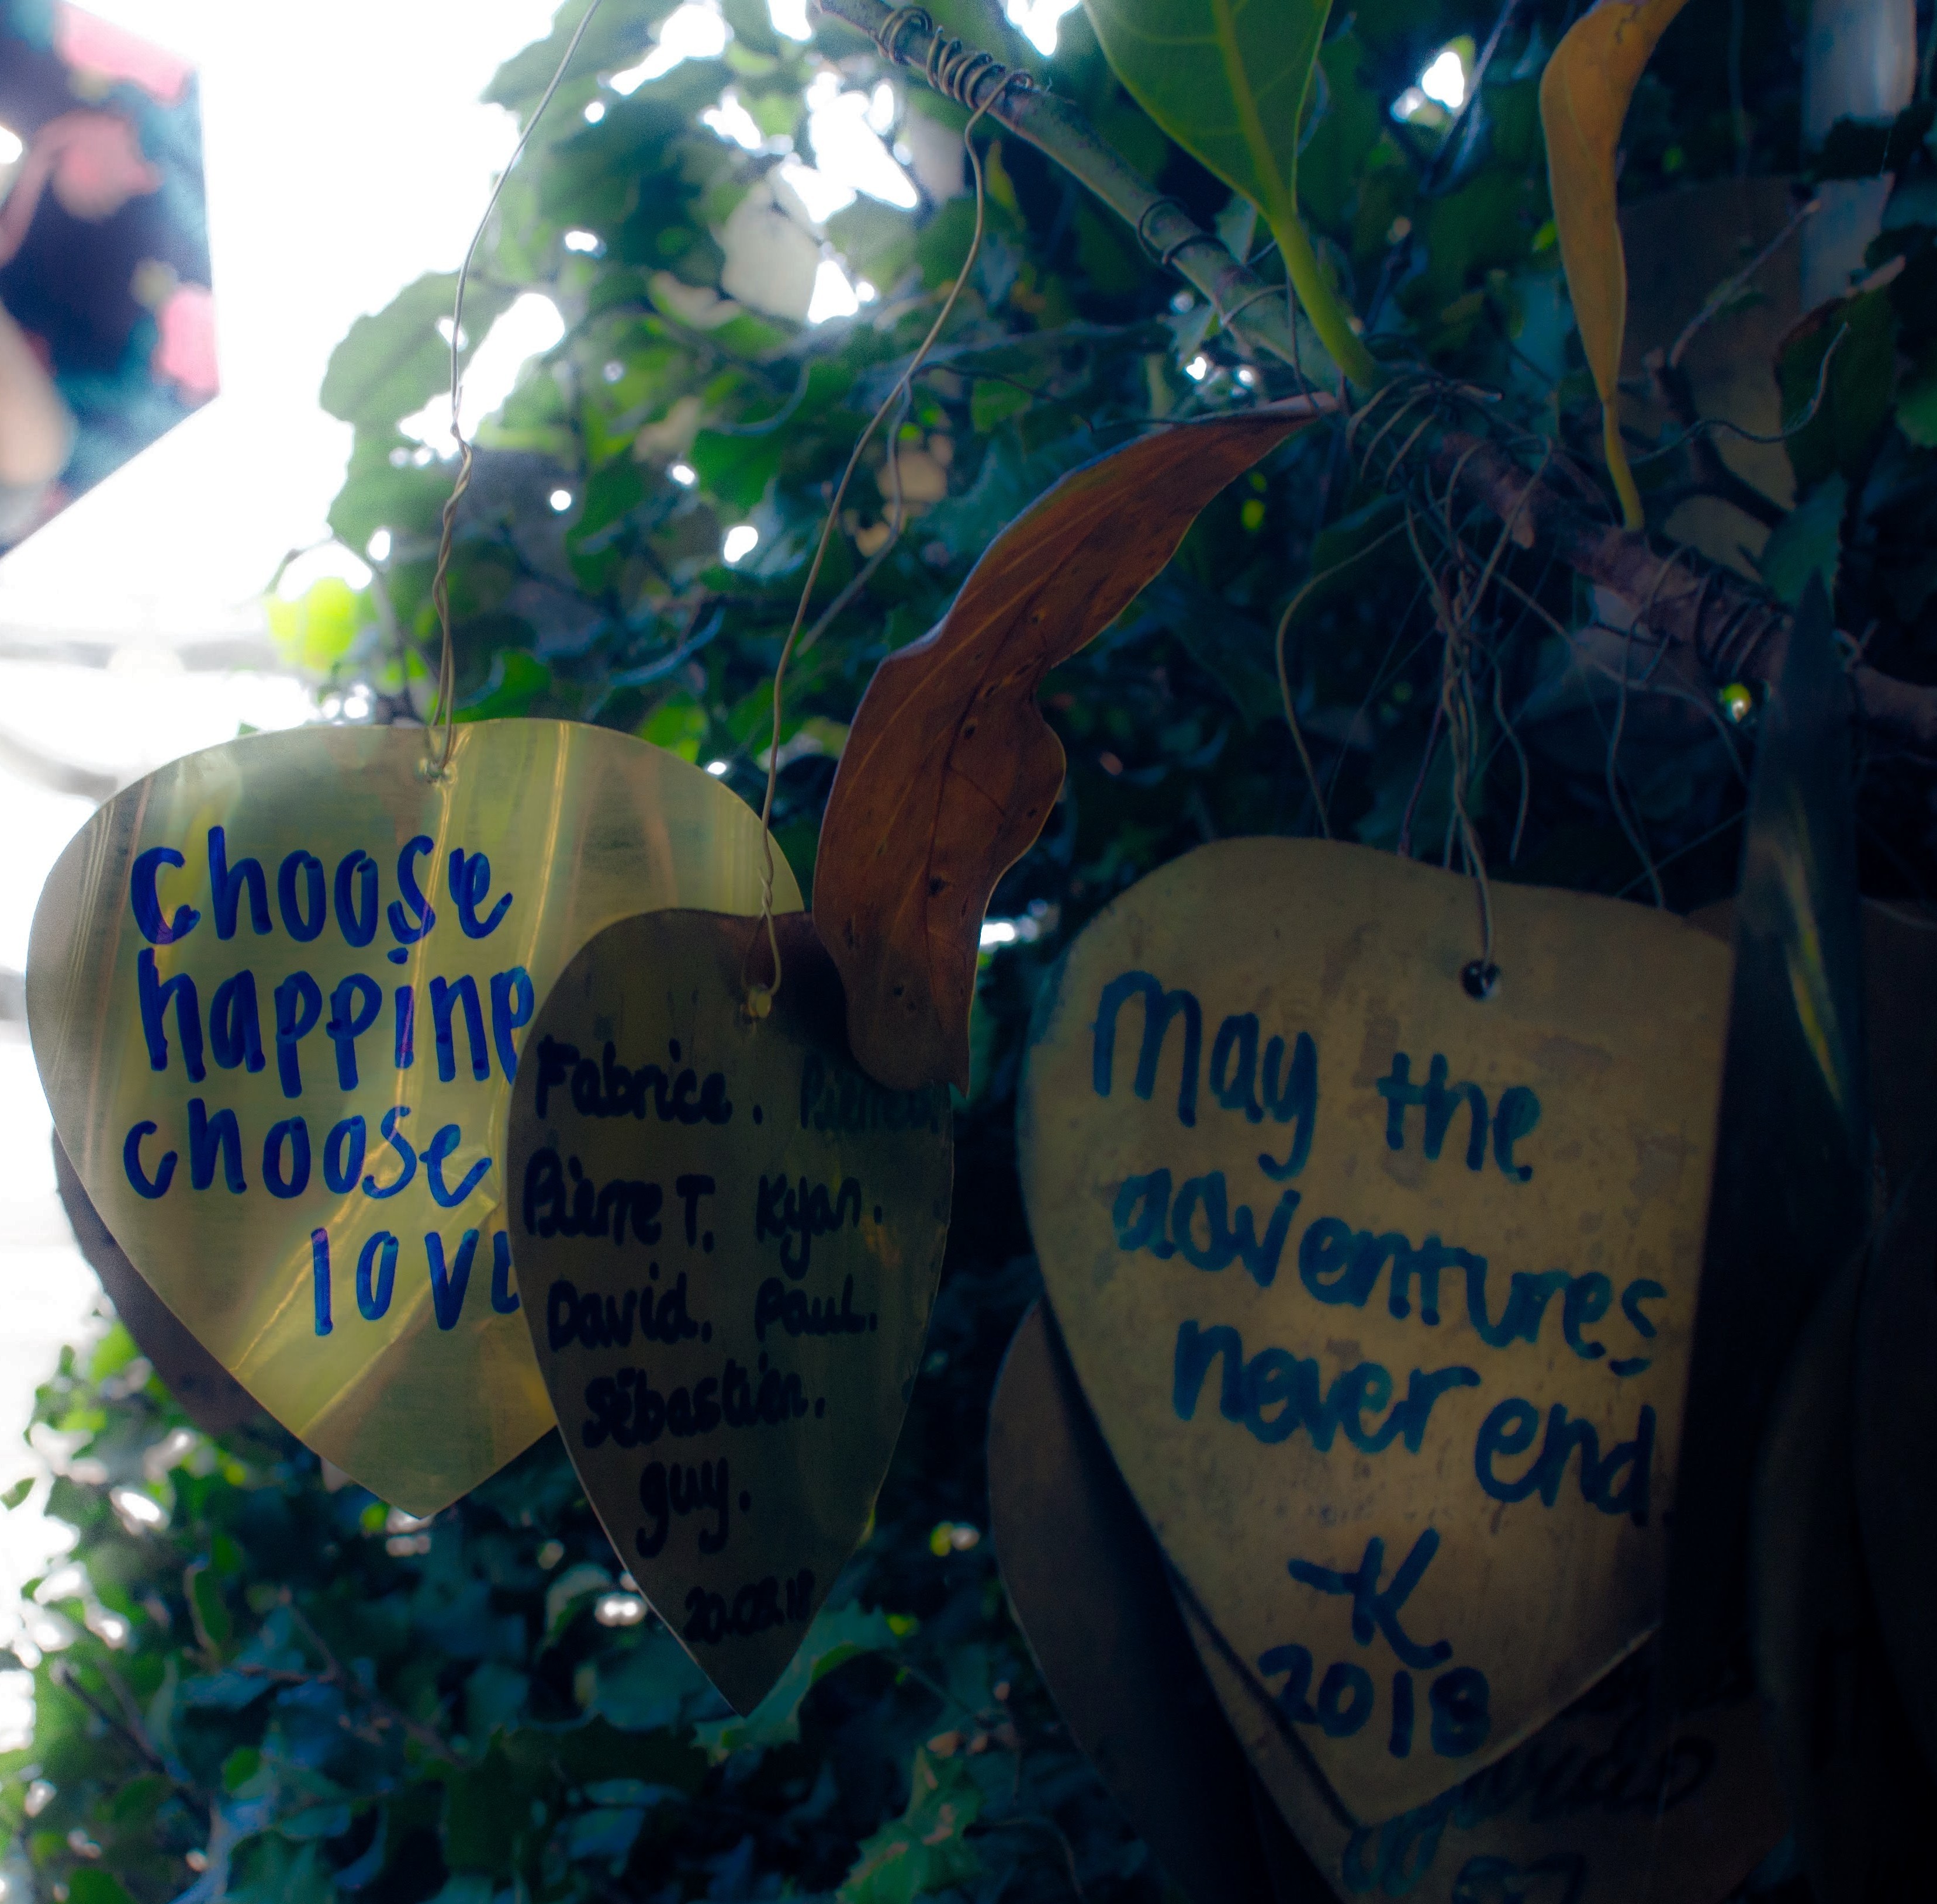 choose
happine
choose
love
Fabrice.
Pierre T. Kyan.
David. Paul.
Sébastien.
guy.
20.08.18
May the
adventures
never end
-K
2018